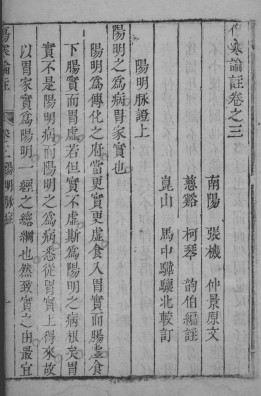 傷寒論註卷之三
南陽 張機 仲景原文
慈谿 柯琴 韵伯編註
崑山 馬中驊 驤北較訂
陽明脉證上
陽明之爲病胃家實也
陽明爲傳化之府當更實更虛食入胃實而腸虛食
下腸實而胃虛若但實不虛斯爲陽明之病根矣胃
實不是陽明病而陽明之爲病悉從胃實上得來故
以胃家實爲陽明一經之總綱也然致實之由最宜
傷寒論註 卷三 陽明脉證 一